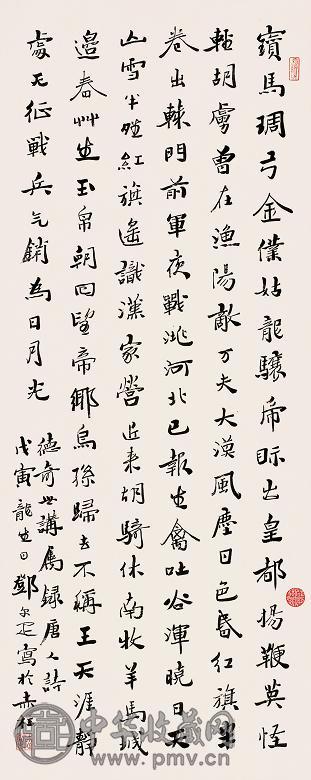 寶馬琱弓金僕姑龍驤虎眎出皇都揚鞭莫怪
輕胡虜曾在漁陽敵万夫大漠風塵日色昏紅旗半
卷出轅門前軍夜戰洮河北已報生禽吐谷渾曉日天
山雪半晴紅旗遙識漢家營近來胡騎休南牧羊馬城
邊春艸生玉帛朝回望帝鄉烏孫歸去不稱王天涯靜
處无征戰兵气銷為日月光
德奇世講屬録唐人詩
戊寅龍生日鄧尔疋寫於赤柱
中华收藏网
www.pmv.cn